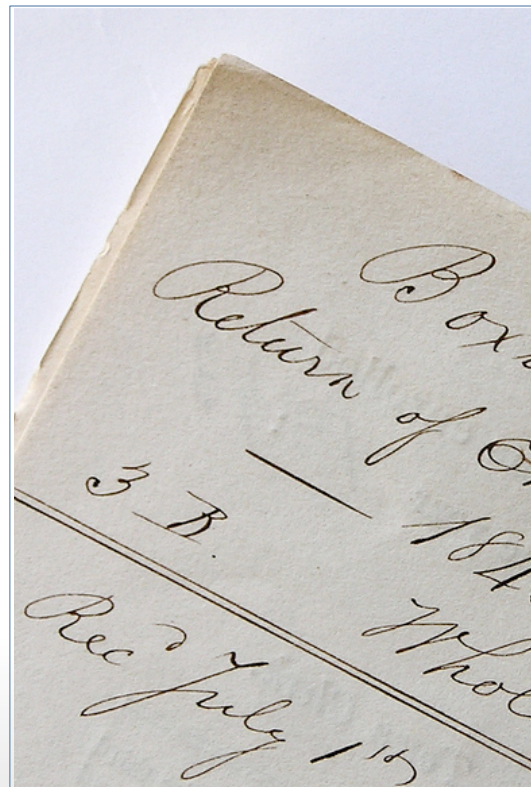 Box
Return of
184
3 B.
Whol
Rec'd July 1st